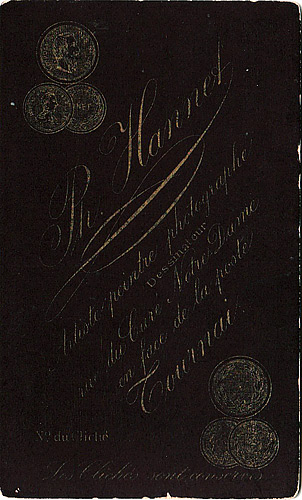 Ph. Hannet
Artiste peintre photographe
Dessinateur
rue du Curé Notre Dame
en face de la poste
Tournai.
No. du Cliché
Les Clichés sont conservés